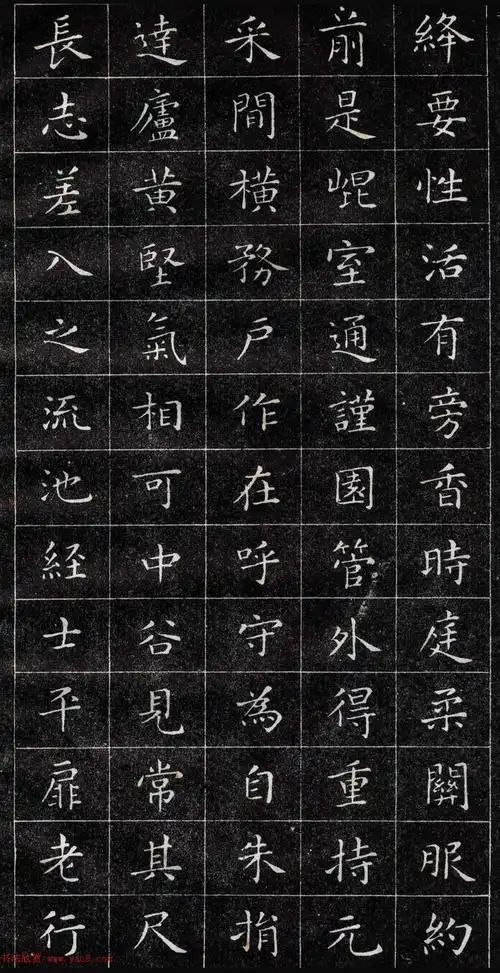 絳要性活有旁香時庭柔關服約
前是崐室通謹園管外得重持元
采間橫務戶作在呼守為自朱捎
達廬黃堅氣相可中谷見常其尺
長志差入之流池経士平扉老行
书法欣赏 www.yac8.com